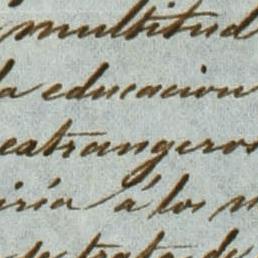 multitud
la educacion
extrangeros
iría á los
se trata de